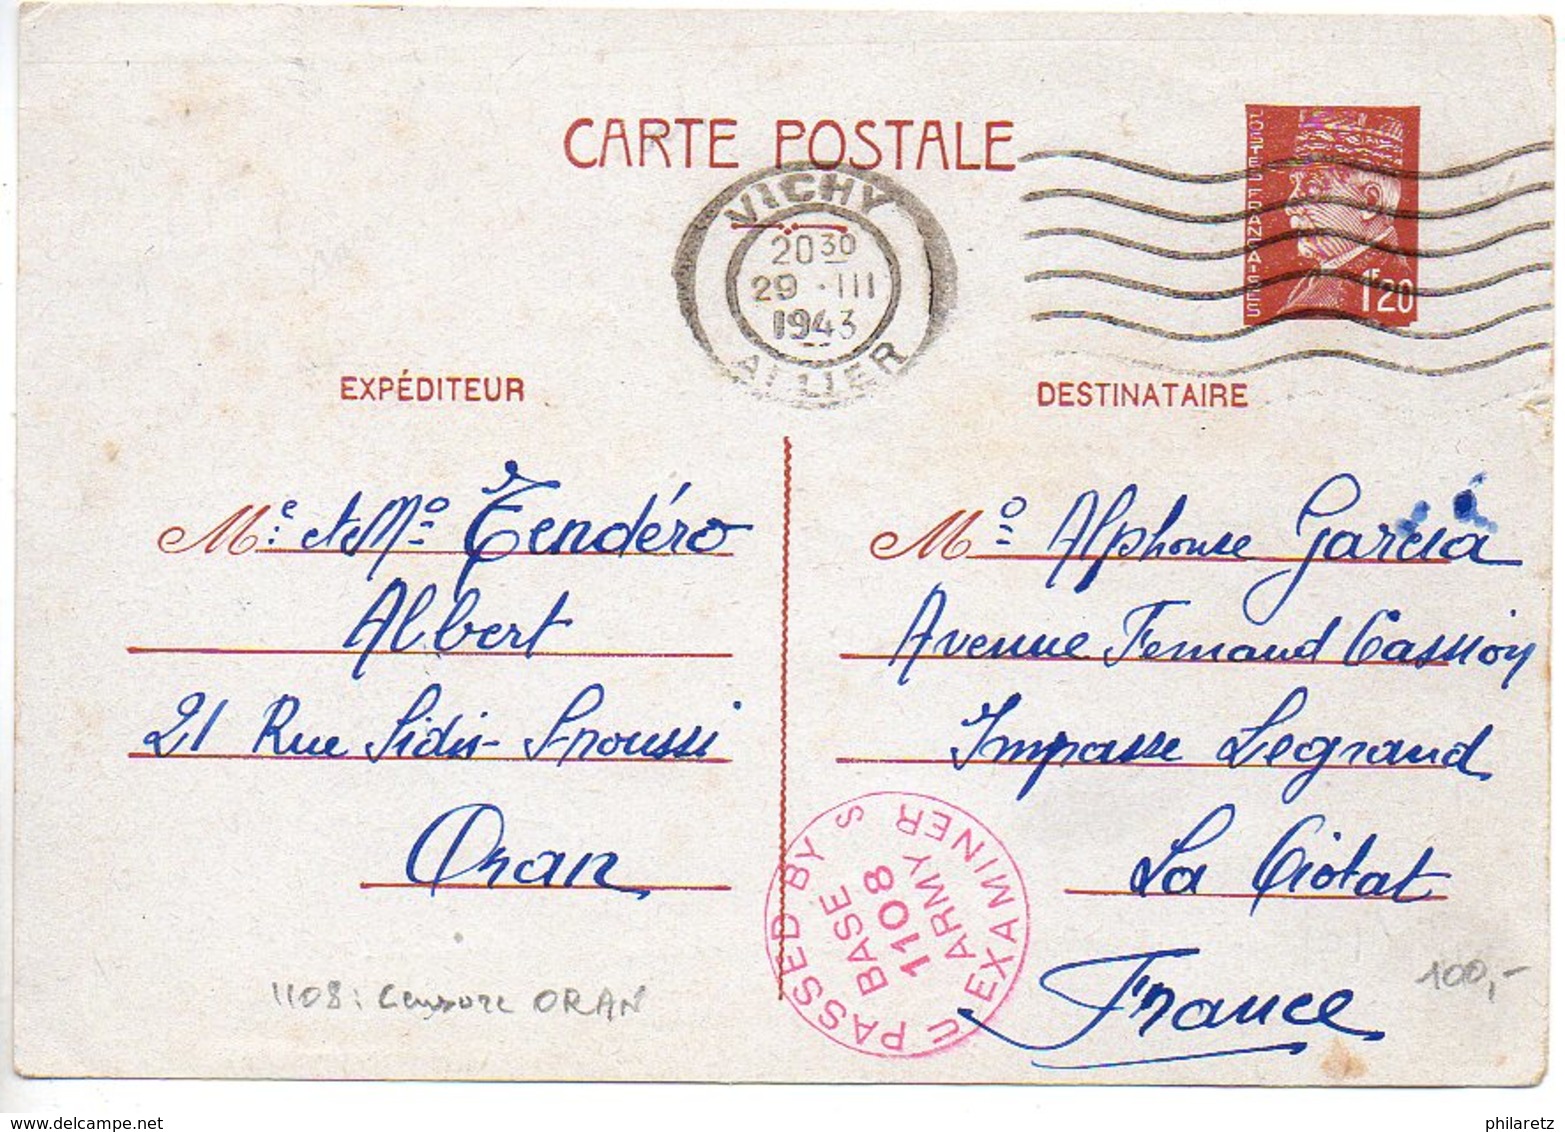 CARTE POSTALE
POSTES FRANÇAISES
1F20
VICHY
20 30
29 · III
1943
ALLIER
EXPÉDITEUR
Mr. et Me Tendéro
Albert
21 Rue Sidi- Snoussi
Oran
DESTINATAIRE
Mo Alphonse Garcia
Avenue Fernand Gassion
Impasse Legrand
La Ciotat
France
PASSED BY
U S
BASE
1108
ARMY
EXAMINER
1108 : Censure ORAN
100,-
www.delcampe.net
philaretz